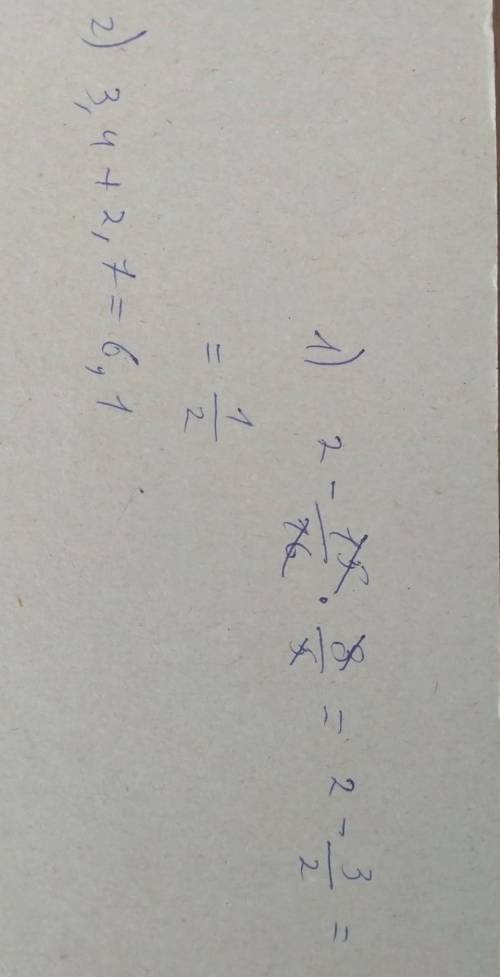 1) 2 - 15/16 · 8/5 = 2 - 3/2 =
= 1/2
2) 3,4 + 2,7 = 6,1